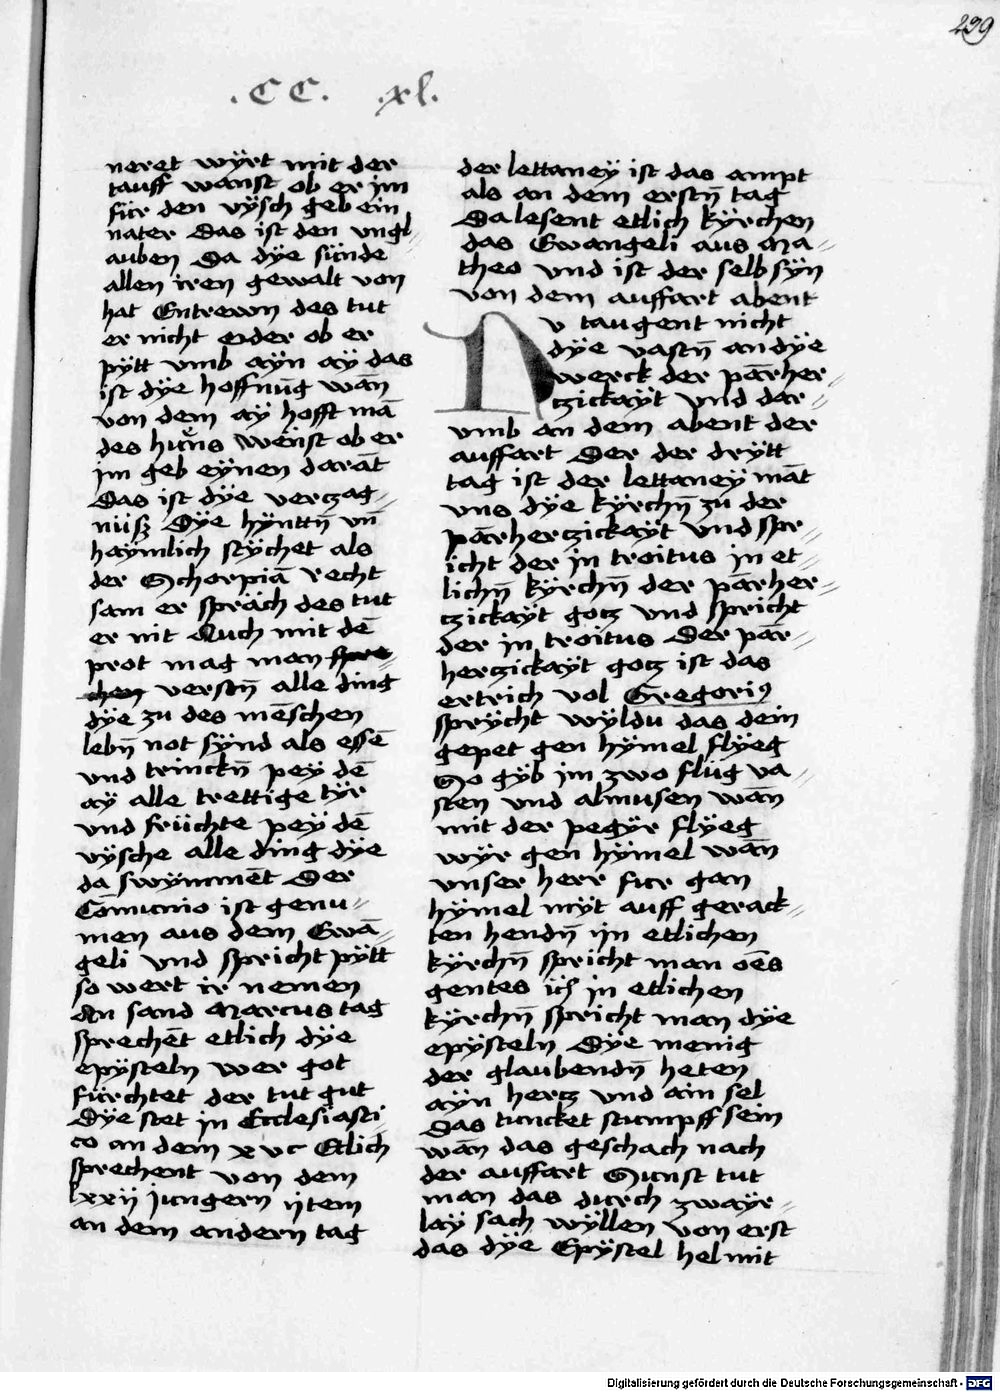 299
.CC. .xl.
neret wÿrt mit der
tauff wanst ob er im
für den vÿsch geb ein
nater Das ist den vngl=
auben Da dÿe sünde
allen iren gewalt von
hat Entrewn des tut
er nicht oder ob er
pÿtt vmb aÿn aÿ das
ist dÿe hoffnūg wān
von dem aÿ hofft mā
des hūns wenst ob er
im geb eÿnen darāt
Das ist dÿe verczag=
nüß Dÿe hÿnttn̄ vn̄
haÿmlich stÿchet als
der Schorpiā recht
sam er spräch des tut
er nit Auch mit dē
prot mag man spre
chen verstn̄ alle ding
dÿe zu des mēschen
lebn̄ not sÿnd als essē
vnd trinckn̄ peÿ dē
aÿ alle trettige tÿr
vnd früchte peÿ dē
vÿsche alle ding dÿe
da swÿmmēt Der
Cōmunio ist genu=
men aus dem Ewā=
geli vnd spricht pÿtt
so wert ir nemen
An sand Marcus tag
sprechēt etlich dÿe
epÿsteln wer got
fürchtet der tut gut
Dÿe stet in Ecclesiasti=
co an dem xvc Etlich
sprechent von dem
lxxij jungern ijtem
an dem andern tag
der lettaneÿ ist das ampt
als an dem erstn̄ tag
Da lesent etlich kÿrchen
das Ewangeli aus Ma=
theo vnd ist der selb sÿn
von dem auffart abent
Nv taugent nicht
dÿe vastn̄ an dÿe
werck der pārher=
tzickaÿt vnd dar=
vmb an dem abent der
auffart Der der drÿtt
tag ist der lettaneÿ māt
vns dÿe kÿrchn̄ zu der
pārherczickaÿt vnd spr=
icht der in troitus in et=
lichn̄ kÿrchn̄ der pārher=
tzickaÿt gotz vnd spricht
der in troitus Der pār=
herczickaÿt gotz ist das
ertrich vol Gregorius
sprÿcht wÿldu das dein
gepet gen hÿmel flÿeg
So gÿb im zwo flüg va=
sten vnd almusen wān
mit der pegÿr flÿeg
wÿr gen hÿmel wān
vnser herr fur gan
hÿmel mÿt auff gerack=
ten hendn̄ ijn etlichen
kÿrchn̄ spricht man oēs
gentes in etlichen
kÿrchn̄ spricht man dÿe
epÿsteln Dÿe menig
der glaubendn̄ heten
aÿn hertz vnd ain sel
Das tuncket stumpff sein
wān das geschach nach
der auffart Sunst tut
man das durch zwaÿr=
laÿ sach wÿllen von erst
das dÿe Epÿstel hel mit
Digitalisierung gefördert durch die Deutsche Forschungsgemeinschaft - DFG